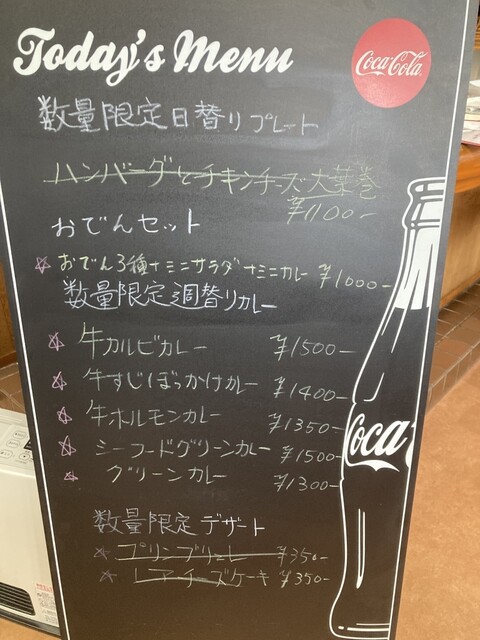 Today's Menu
Coca-Cola
数量限定日替りプレート
ハンバーグとチキンチーズ大葉巻
¥1100-
おでんセット
☆ おでん3種+ミニサラダ+ミニカレー ¥1000-
数量限定週替りカレー
☆ 牛カルビカレー ¥1500-
☆ 牛すじぼっかけカレー ¥1400-
☆ 牛ホルモンカレー ¥1350-
☆ シーフードグリーンカレー ¥1500-
☆ グリーンカレー ¥1300-
Coca
数量限定デザート
☆ プリンブリュレ ¥350-
☆ レアチーズケーキ ¥350-